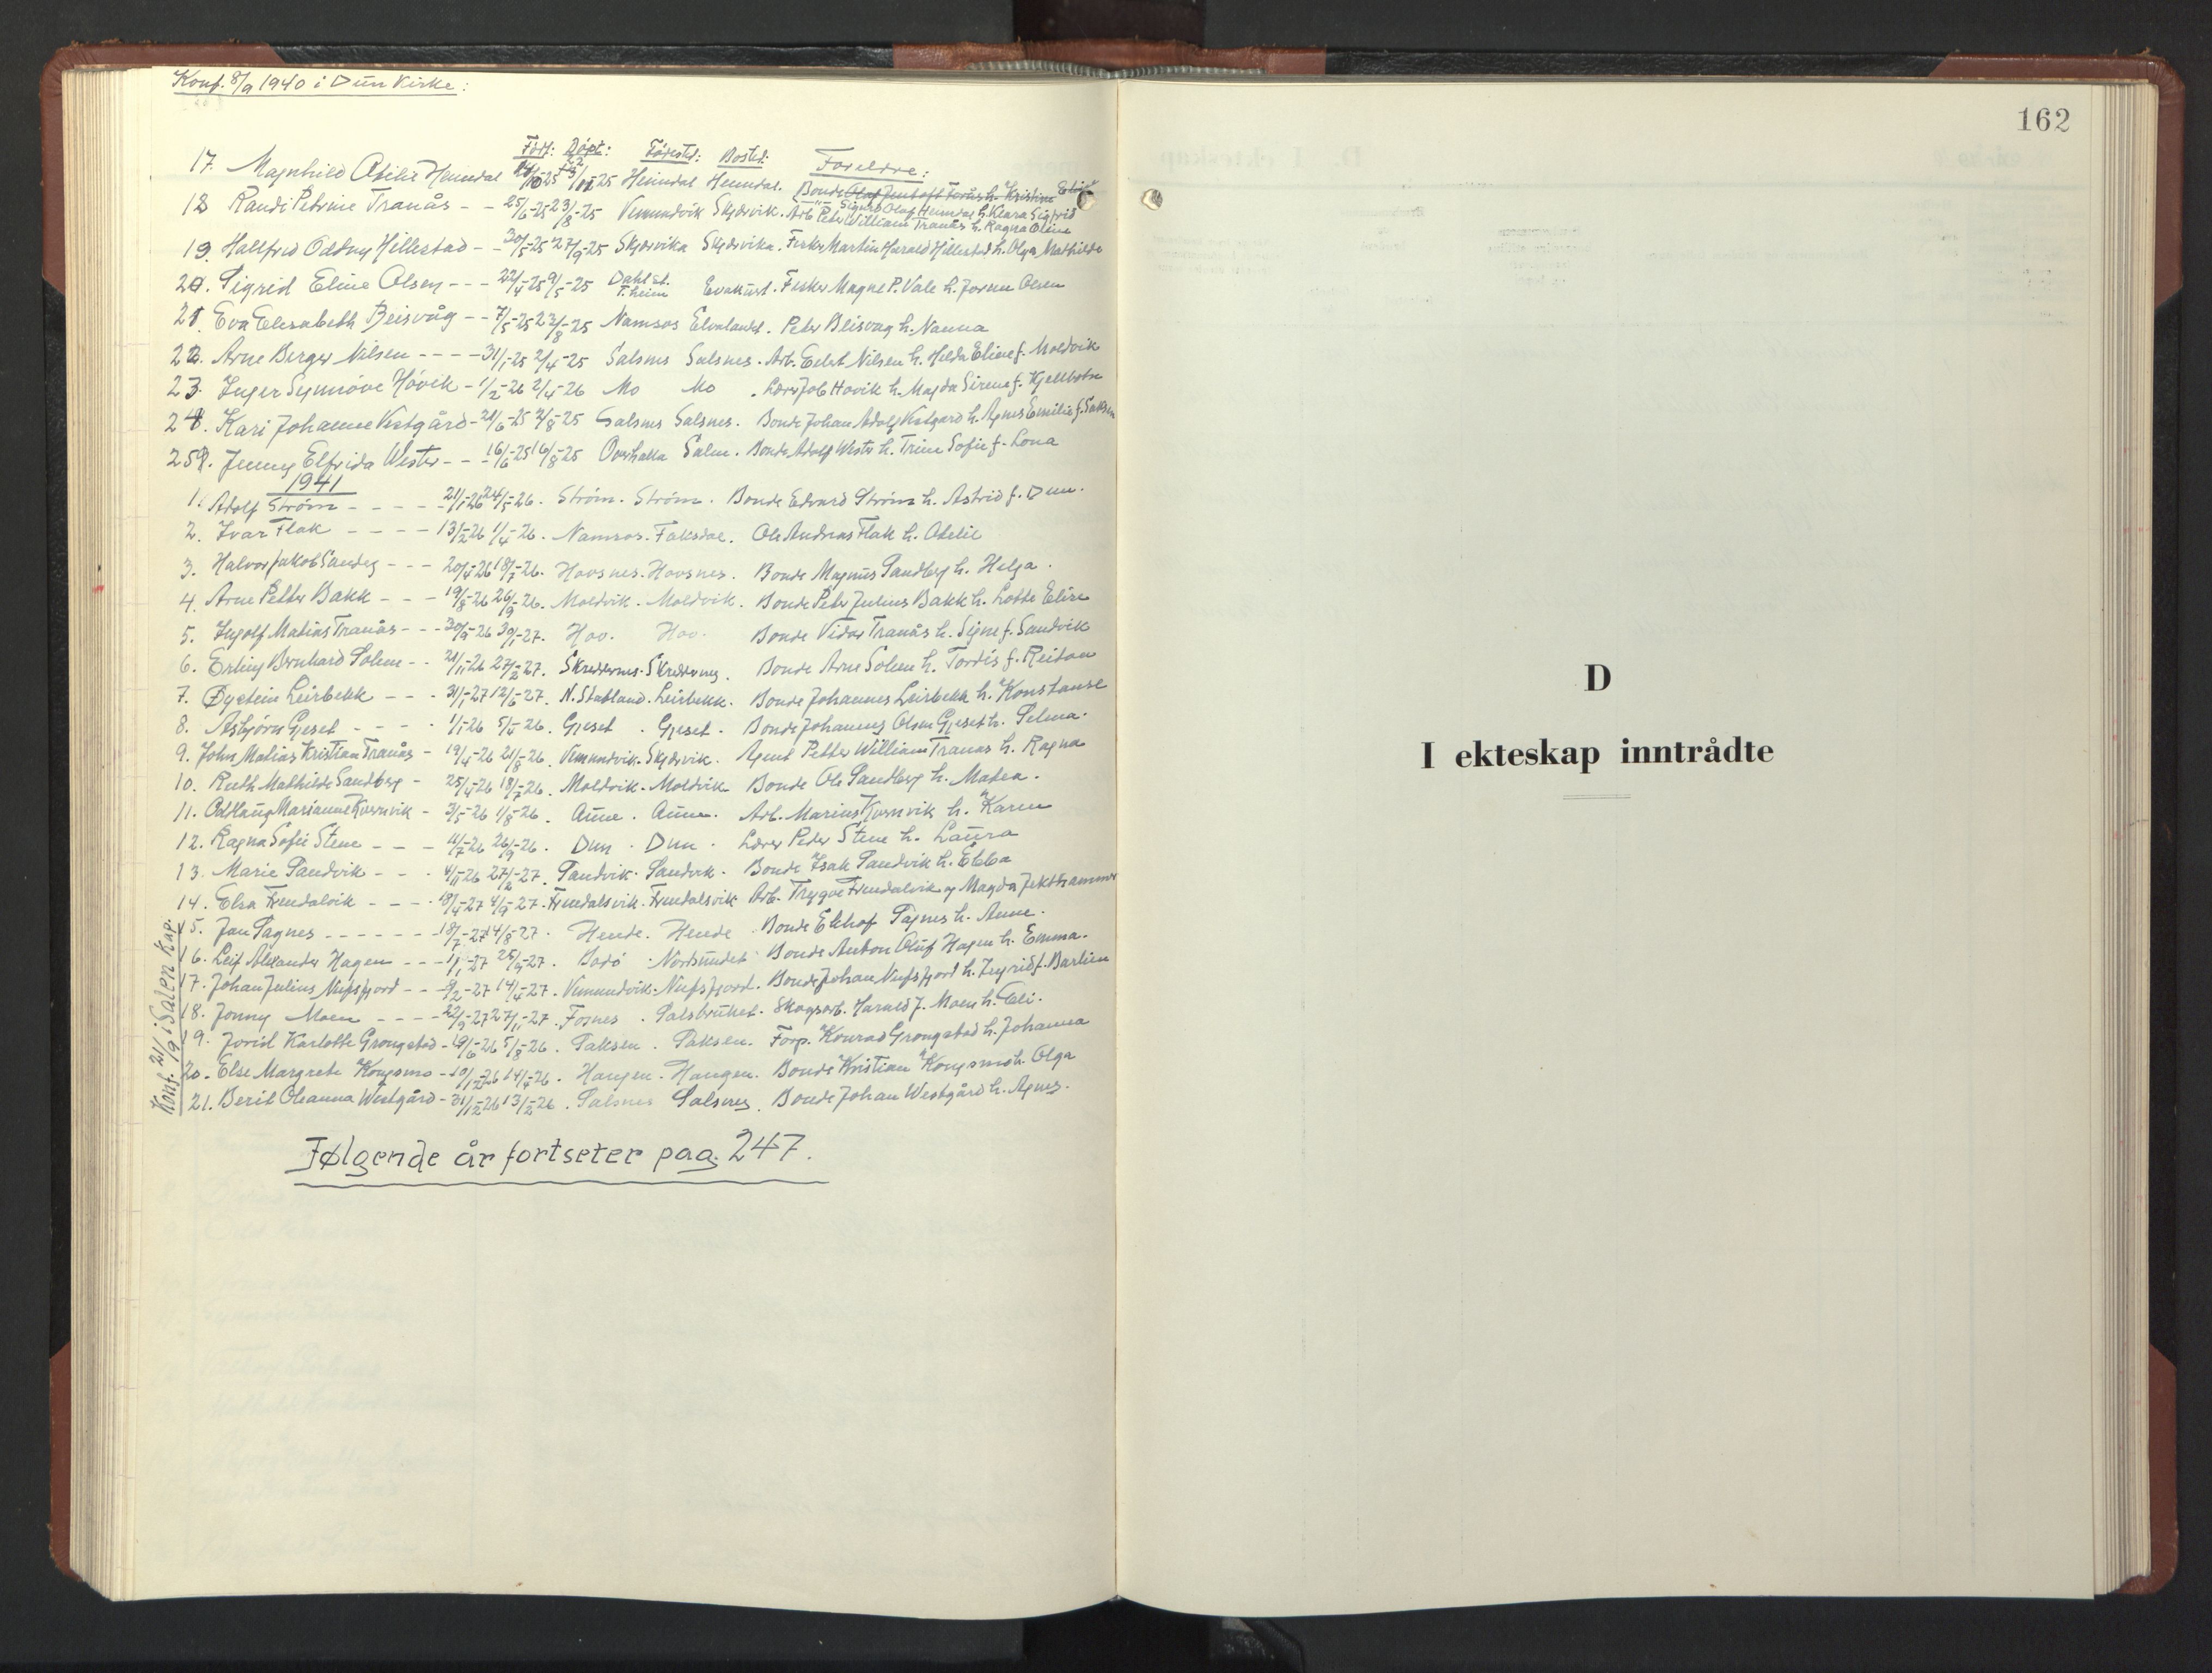 Konf. 8/9 1940 i Dun Kirke:
Född: Döpt: Födested: Bosted: Foreldre:
17. Magnhild Otelie Heimdal 14/10-25 /11-25 Heimdal Heimdal. Bonde Olaf Jentoft Forås h. Kristine
-"- Sigurd Olaf Heimdal h. Klara Sigfrid
18 Randi Petrine Tranås - - 25/6-25 23/8-25 Vemundvik Skjærvik. Arb. Peter William Tranås h. Ragna Oline
19. Hallfrid Oddny Hillestad - - 30/5-25 27/9-25 Skjærvika Skjærvika. Fisker Martin Harald Hillestad h. Olga Mathilde
20. Sigrid Eline Olsen - - - 22/4-25 9/5-25 Dahl st. T.heim Evakuert. Fisker Magne P. Vale h. Jorun Olsen
21. Eva Elisabeth Beisvåg - - 7/5-25 23/8-25 Namsos Elvalandet. Peter Beisvag h. Nanna
22. Arne Berger Nilsen - - - - 31/1-25 2/4-25 Salsnes Salsnes. Arb. Eilert Nilsen h. Helda Eline f. Moldvik
23. Inger Synnöve Hövik - 1/2-26 2/4-26 Mo Mo . Lærer Job Hövik h. Magda Sirena f.
24. Kari Johanne Vestgård - 21/6-25 2/8-25 Salsnes Salsnes. Bonde Johan Adolf Vestgard h. Agnes Emilie f. Saksen
25. Jenny Elfrida Wester - - 16/6-25 16/8-25 Overhalla Salen. Bonde Adolf Wester h. Trine Sofie f. Lona
1941
1. Adolf Ström - - - - - 21/1-26 24/5-26. Ström. Ström. Bonde Edvard Ström h. Astrid f. Dun.
2. Ivar Flak - - - - 13/2-26 1/4-26. Namsos. Faksdal. Ole Andreas Flak h. Otelie
3. Halvor Jakob Sandberg - - - 20/4-26 18/7-26. Hovsnes. Hovsnes. Bonde Magnus Sandberg h. Helga.
4. Arne Petter Bakk - - - 19/8-26 26/9-26. Moldvik. Moldvik. Bonde Peter Julius Bakk h. Lotte Elise
5. Ingolf Matias Tranås - - - 30/9-26 30/1-27. Hov. Hov. Bonde Vidar Tranås h. Signe f. Sandvik
6. Erling Bernhard Solum - - 21/11-26 27/2-27. Skreddernes. Skreddernes. Bonde Arne Solum h. Tordis f. Reitan
7. Øystein Leirbekk - - - 31/1-27 12/6-27. N. Statland. Leirbekk. Bonde Johannes Leirbekk h. Konstanse
8. Asbjörn Gjeset - - - - 1/1-26 5/4-26. Gjeset. Gjeset. Bonde Johannes Olsen Gjeset h. Selma.
9. John Matias Kristian Tranås - 19/4-26 21/8-26. Vemundvik. Skjærvik. Agent Petter William Tranas h. Ragna
10. Ruth Mathilde Sandberg - 25/4-26 18/7-26. Moldvik. Moldvik Bonde Ole Sandberg h. Matea.
11. Oddlaug Marianne Kvernvik - 3/5-26 1/8-26. Aune. Aune. Arb. Marius Kvernvik h. Karen
12. Ragna Sofie Stene - - - 11/7-26 26/9-26. Dun. Dun. Lærer Peder Stene h. Laura
13. Marie Sandvik - - - 4/11-26 27/2-27. Sandvik. Sandvik. Bonde Isak Sandvik h. Ebba
14. Elsa Frendalvik - - - - 18/4-27 4/9-27. Frendalsvik. Frendalsvik. Arb. Trygve Frendalvik og Magda Jekthammer
15. Jan Sagnes - - - - - - 18/7-27 14/8-27. Hende. Hende Bonde Elihof Sagnes h. Anne.
16. Leif Alexander Hagen - - - 1/1-27 25/9-27. Bodö. Nordsundet. Bonde Anton Oluf Hagen h. Emma.
17. Johan Julius Nufsfjord - - 9/2-27 14/4-27. Vemundvik. Nufsfjord. Bonde Johan Nufsfjord h. Ingrid f. Barlien
18. Jonny Moen - - - - 22/9-27 27/11-27. Fosnes. Salsbruket. Skogsarb. Harald J. Moen h. Eli.
19. Jorid Karlotte Grongstad - 19/6-26 5/8-26. Saksen. Saksen. Forp. Konrad Grongstad h. Johanna
20. Else Margrete Kongsmo - 10/12-26 14/4-26. Haugen. Haugen. Bonde Kristian Kongsmo h. Olga
21. Berit Ohanna Westgård - 31/12-26 13/2-26. Salsnes Salsnes. Bonde Johan Westgård h. Agnes.
Konf. 21/9 i Salen kap.
Følgende år fortseter pag. 247.
162
D
I ekteskap inntrådte